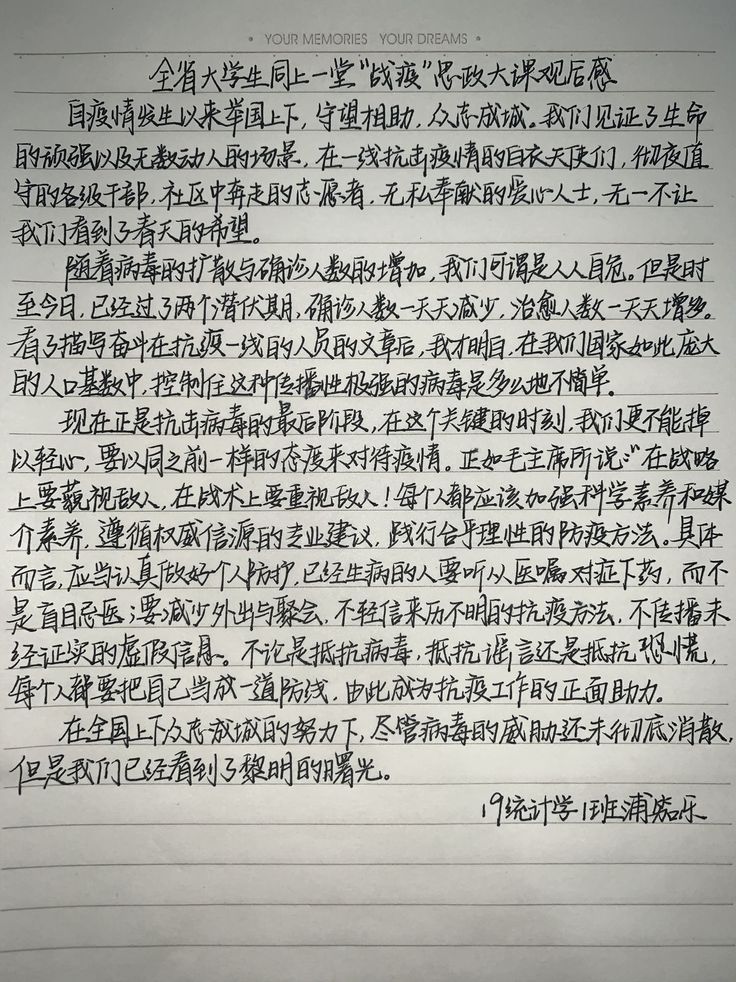 • YOUR MEMORIES YOUR DREAMS •
全省大学生同上一堂“战疫”思政大课观后感
自疫情发生以来举国上下，守望相助，众志成城。我们见证了生命
的顽强以及无数动人的场景，在一线抗击疫情的白衣天使们，彻夜值
守的各级干部，社区中奔走的志愿者，无私奉献的爱心人士，无一不让
我们看到了春天的希望。
随着病毒的扩散与确诊人数的增加，我们可谓是人人自危。但是时
至今日，已经过了两个潜伏期，确诊人数一天天减少，治愈人数一天天增多。
看了描写奋斗在抗疫一线的人员的文章后，我才明白，在我们国家如此庞大
的人口基数中，控制住这种传播性极强的病毒是多么地不简单。
现在正是抗击病毒的最后阶段，在这个关键的时刻，我们更不能掉
以轻心，要以同之前一样的态度来对待疫情。正如毛主席所说：“在战略
上要藐视敌人，在战术上要重视敌人！每个人都应该加强科学素养和媒
介素养，遵循权威信源的专业建议，践行合乎理性的防疫方法。具体
而言，应当认真做好个人防护，已经生病的人要听从医嘱对症下药，而不
是盲目忌医；要减少外出与聚会，不轻信来历不明的抗疫方法，不传播未
经证实的虚假信息。不论是抵抗病毒，抵抗谣言还是抵抗恐慌，
每个人都要把自己当成一道防线，由此成为抗疫工作的正面助力。
在全国上下众志成城的努力下，尽管病毒的威胁还未彻底消散，
但是我们已经看到了黎明的曙光。
19统计学1班浦乐